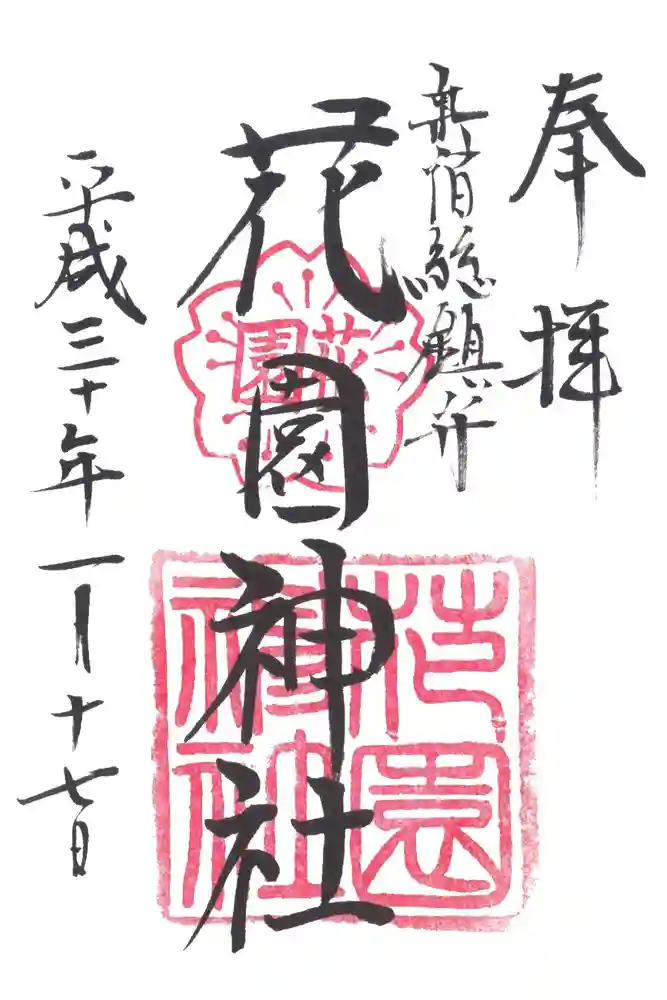 奉拝
新宿総鎮守
花園神社
花園
花園神社
平成三十年一月十七日